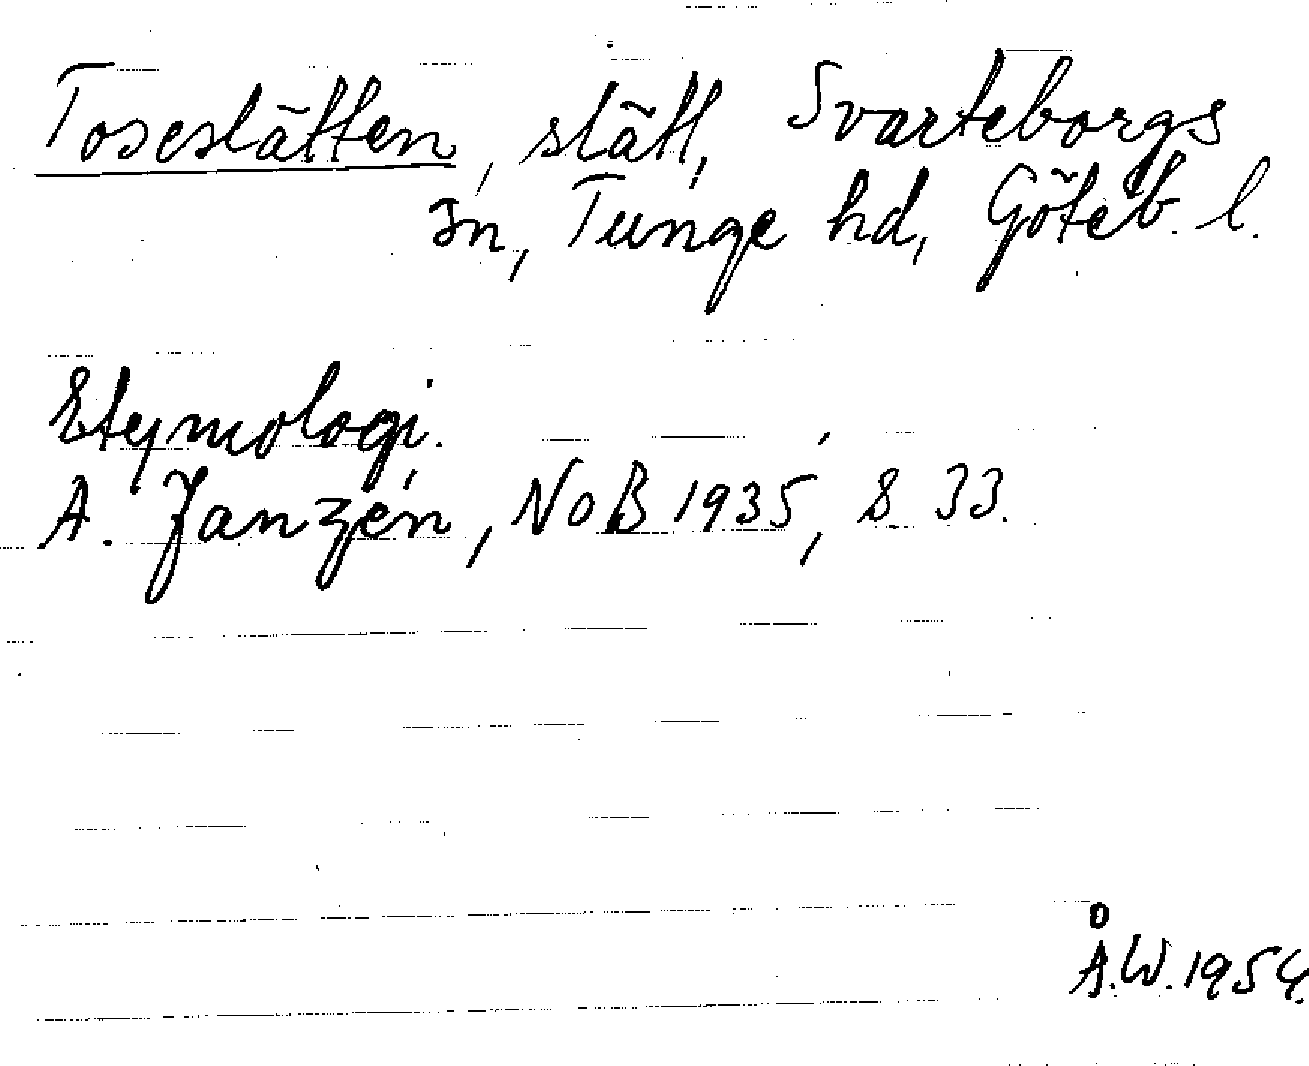 Toseslätten, slätt, Svarteborgs
sn, Tunge hd, Göteb. l.
Etymologi.
A. Janzén, NoB 1935, s 33.
Å.W. 1954.